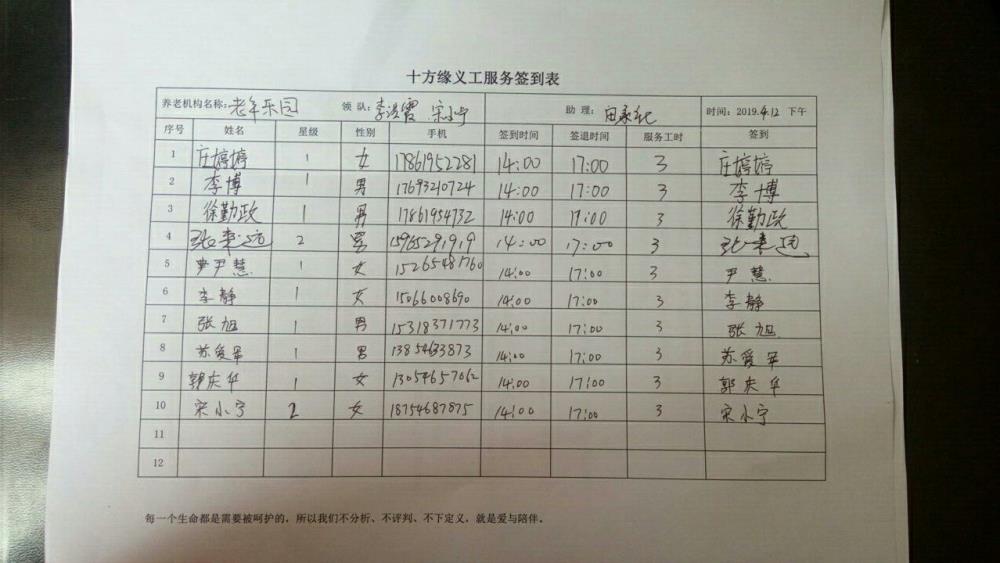 十方缘义工服务签到表
养老机构名称:老年乐园 领 队: 宋小宁 助 理: 时间:2019.4.12 下午
序号 姓名 星级 性别 手机 签到时间 签退时间 服务工时 签到
1 庄婷婷 1 女 17861952281 14:00 17:00 3 庄婷婷
2 李博 1 男 17693210724 14:00 17:00 3 李博
3 徐勤政 1 男 17861954732 14:00 17:00 3 徐勤政
4 2 男 15965291919 14:00 17:00 3
5 尹慧 1 女 15265481760 14:00 17:00 3 尹慧
6 李静 1 女 15066008690 14:00 17:00 3 李静
7 张旭 1 男 15318371773 14:00 17:00 3 张旭
8 苏爱军 1 男 13854633873 14:00 17:00 3 苏爱军
9 郭庆华 1 女 13054657062 14:00 17:00 3 郭庆华
10 宋小宁 2 女 18754687875 14:00 17:00 3 宋小宁
11
12
每一个生命都是需要被呵护的,所以我们不分析、不评判、不下定义,就是爱与陪伴。